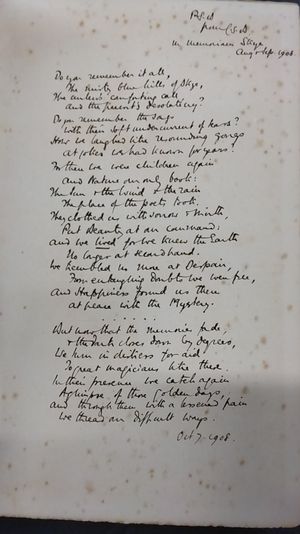 P.S.W
from C.S.D
In memoriam Skye.
Aug & Sep. 1908.
Do you remember it all,
The misty blue hills of Skye,
The curlew's comforting call
And the forest's desolating?
Do you remember the days
With their soft undercurrent of tears?
How we laughed like resounding gongs
At jokes we had known for years?
For then we were children again
And Nature our only book:
The sun & the wind & the rain
The place of the poets took.
They clothed us with sorrow & mirth,
Put Beauty at our command;
And we lived for we knew the Earth
No longer at second hand.
We trembled no more at Despair,
From entangling Doubts we were free,
And Happiness found us there
At peace with the Mystery.
. . . . . .
But now that the memories fade,
& the Dark closes down by degrees,
We turn in for aid
To great magicians like these.
In their presence we catch again
A glimpse of those Golden days,
And through them with a lessened pain
We thread our difficult ways.
Oct 7. 1908.